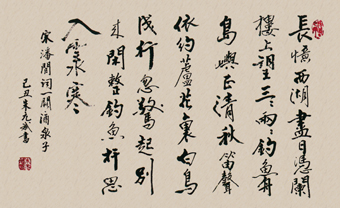 長憶西湖盡日憑闌
樓上望三三兩兩釣魚舟
島嶼正清秋笛聲
依約蘆花裏白鳥
成行忽驚起別
來閒整釣魚杆思
入雲水寒
宋潘閬詞一闋酒泉子
己丑朱九書